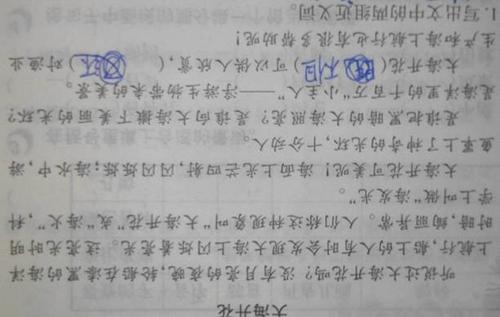 大海开花
听说过大海开花吗?没有月亮的夜晚,轮船在漆黑的海洋
上航行,船上的人有时会发现大海上闪烁着亮光。这亮光时明
时暗,绚丽异常。人们称这种现象叫“大海开花”或“海火”,科
学上叫做“海发光”。
大海开花可美呢!海面上光芒四射,闪闪烁烁;海水中,游
鱼罩上了神奇的光环,十分动人。
是谁把黑暗的大海照亮?是谁向大海撒下美丽的光环?
是海洋里的千百万“小主人”——浮游生物带来的美景。
大海开花(不但)可以供人欣赏,(还)对渔业
生产和海上航行也有很多帮助呢!
1.写出文中的两组近义词。